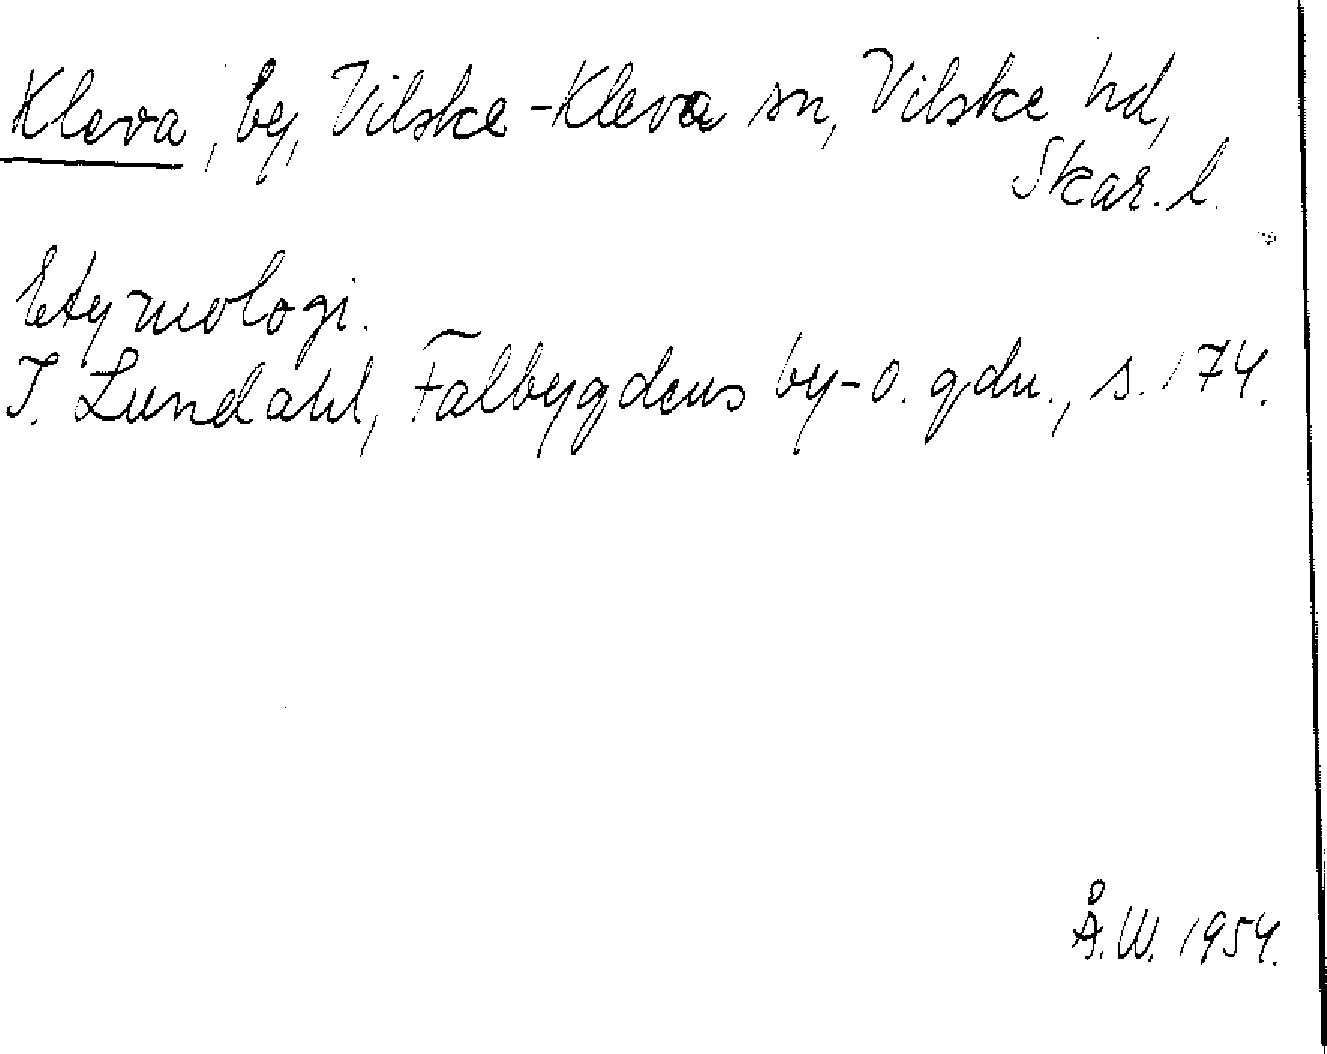 Kleva, by, Vilske-Kleva sn, Vilske hd,
Skar. l.
Etymologi.
I. Lundahl, Falbygdens by- o. gdn., s. 174.
Å.W. 1954.